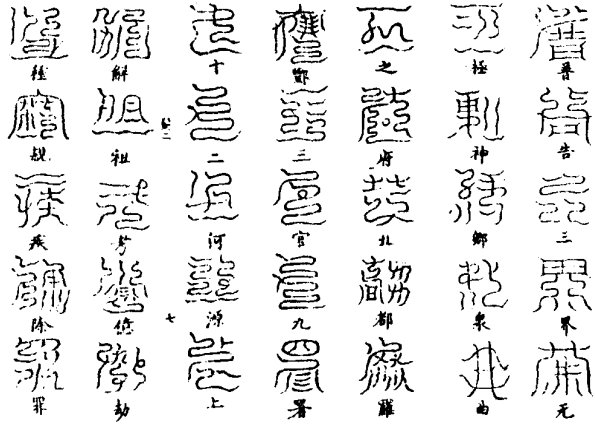 普告三界无
極神鄉泉曲
之府北都羅
酆三官九署
十二河源上
七
解祖考億劫
種親疾除罪